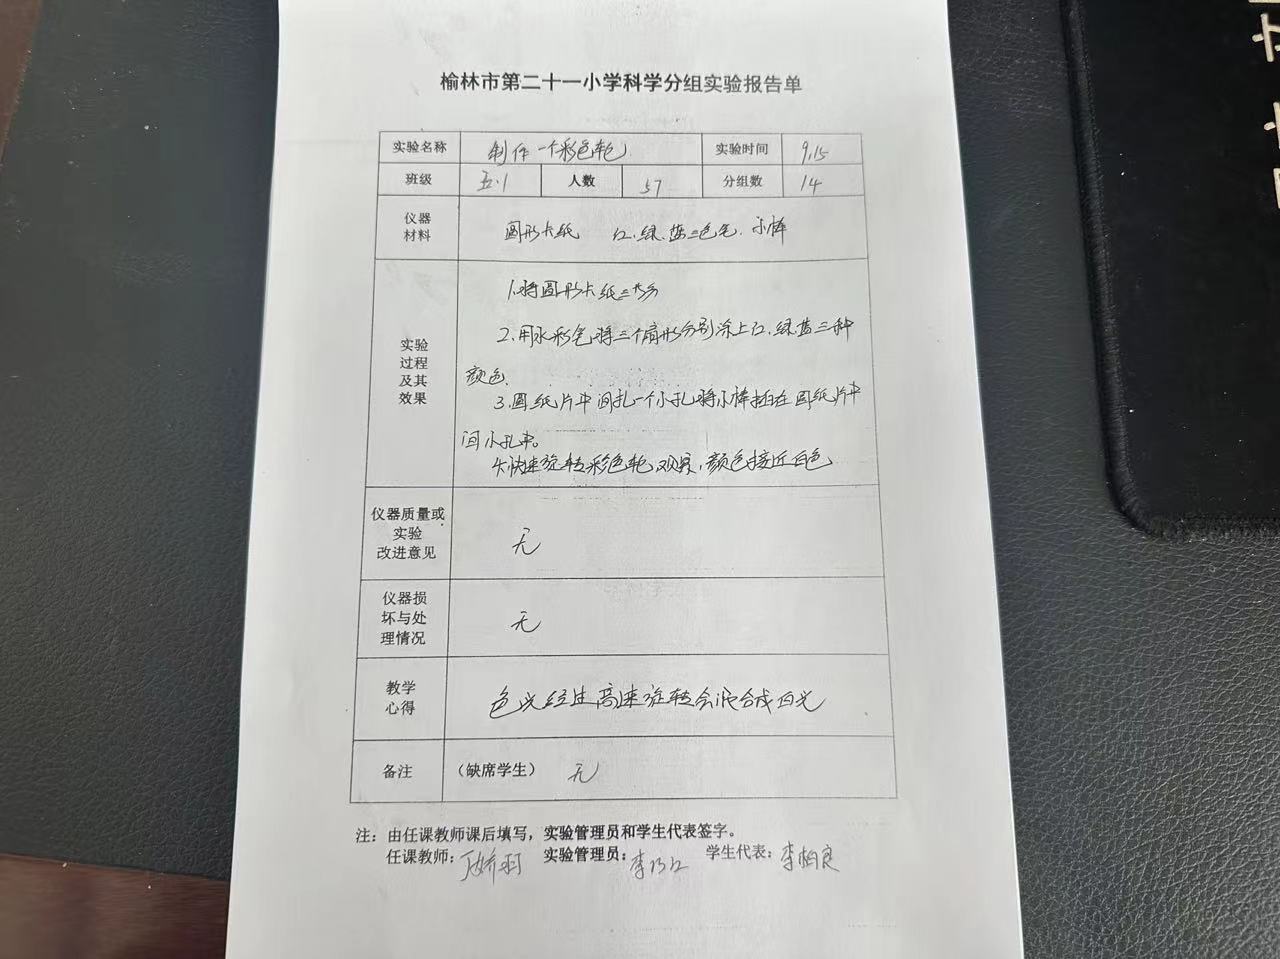 榆林市第二十一小学科学分组实验报告单
实验名称 制作一个彩色轮 实验时间 9.15
班级 五.1 人数 57 分组数 14
仪器
材料
圆形卡纸 红、绿、蓝三色笔、小棒
实验
过程
及其
效果
1.将圆形卡纸三等分
2.用水彩笔将三个扇形分别涂上红、绿、蓝三种
颜色.
3.圆纸片中间扎一个小孔,将小棒插在圆纸片中
间小孔中。
4.快速旋转彩色轮,观察,颜色接近白色
仪器质量或
实验
改进意见
无
仪器损
坏与处
理情况
无
教学
心得
色光经过高速旋转会混合成白光
备注 (缺席学生) 无
注：由任课教师课后填写，实验管理员和学生代表签字。
任课教师： 实验管理员： 学生代表：李柏良